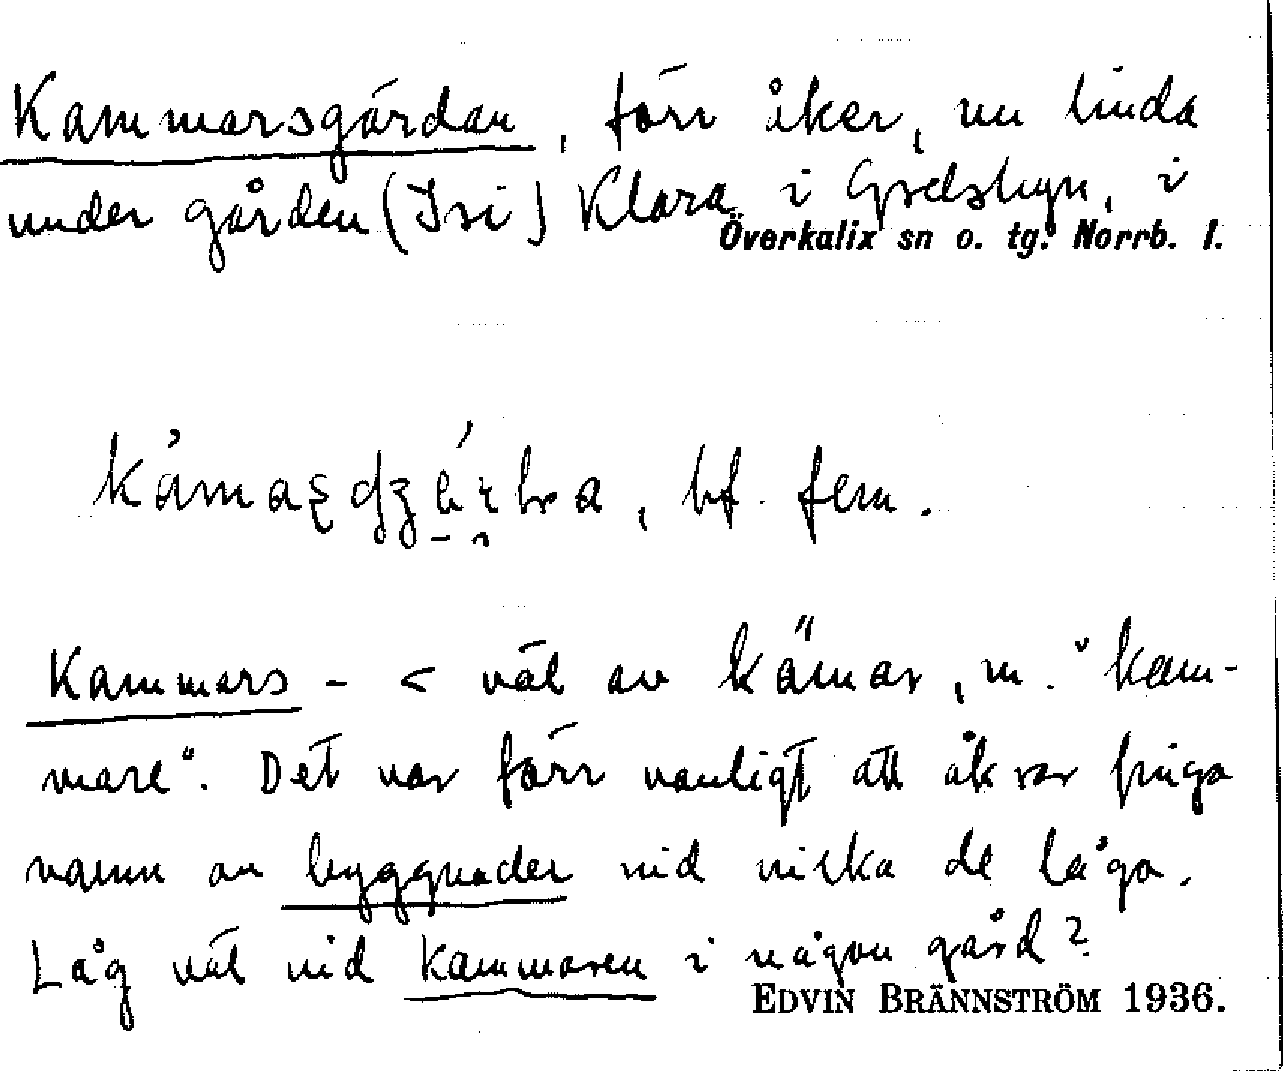 Kammarsgärdan, förr åker, nu linda
under gården (Isi) Klara i Grelsbyn, i
Överkalix sn o. tg. Norrb. l.
bf. fem.
Kammars- < väl av kämar, m. "kam-
mare". Det var förr vanligt att åkrar fingo
namn av byggnader vid vilka de lågo.
Låg väl vid kammaren i någon gård?
EDVIN BRÄNNSTRÖM 1936.